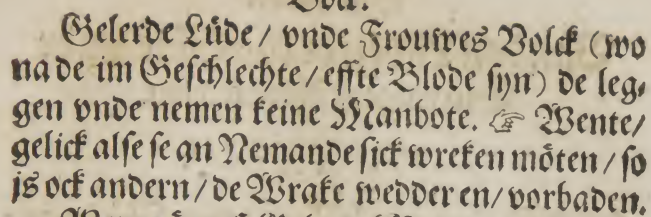 Gelerde Lüde / vnde Frouwes Volck (wo
na de im Geschlechte / effte Blode syn) de leg,
gen vnde nemen keine Manbote. ☞ Wente /
gelick alse se an Nemande sick wreken möten / so
js ock andern / de Wrake wedder en / vorbaden.